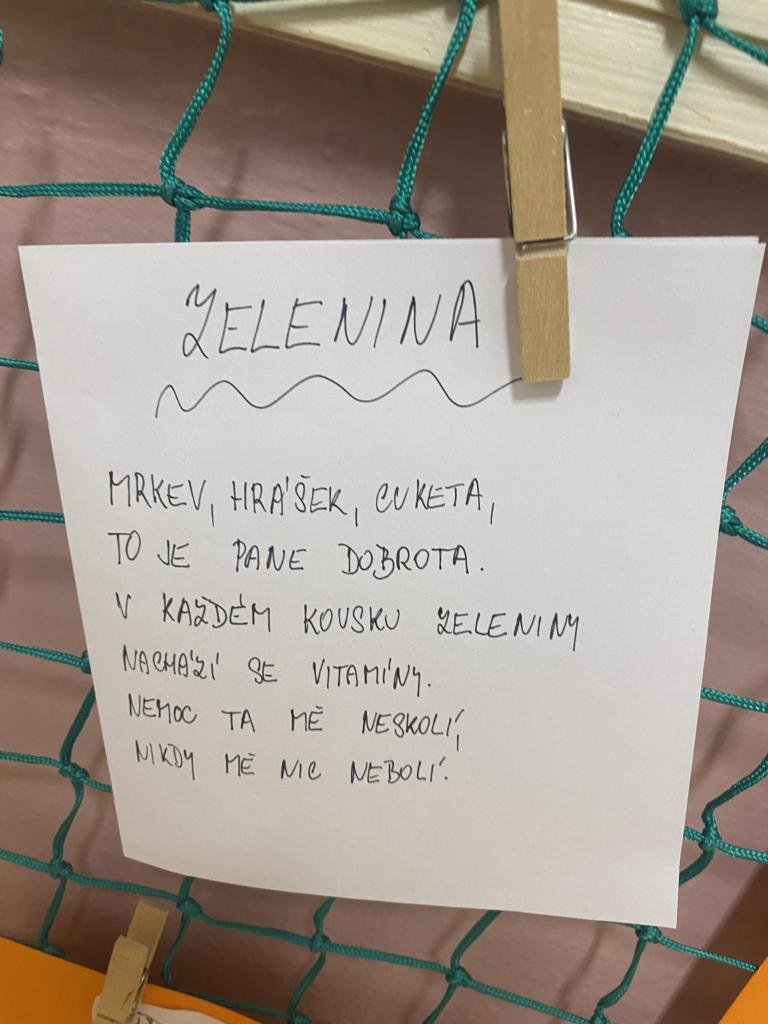 ZELENINA
MRKEV, HRÁŠEK, CUKETA,
TO JE PANE DOBROTA.
V KAŽDÉM KOUSKU ZELENINY
NACHÁZÍ SE VITAMÍNY.
NEMOC TA MĚ NESKOLÍ,
NIKDY MĚ NIC NEBOLÍ.